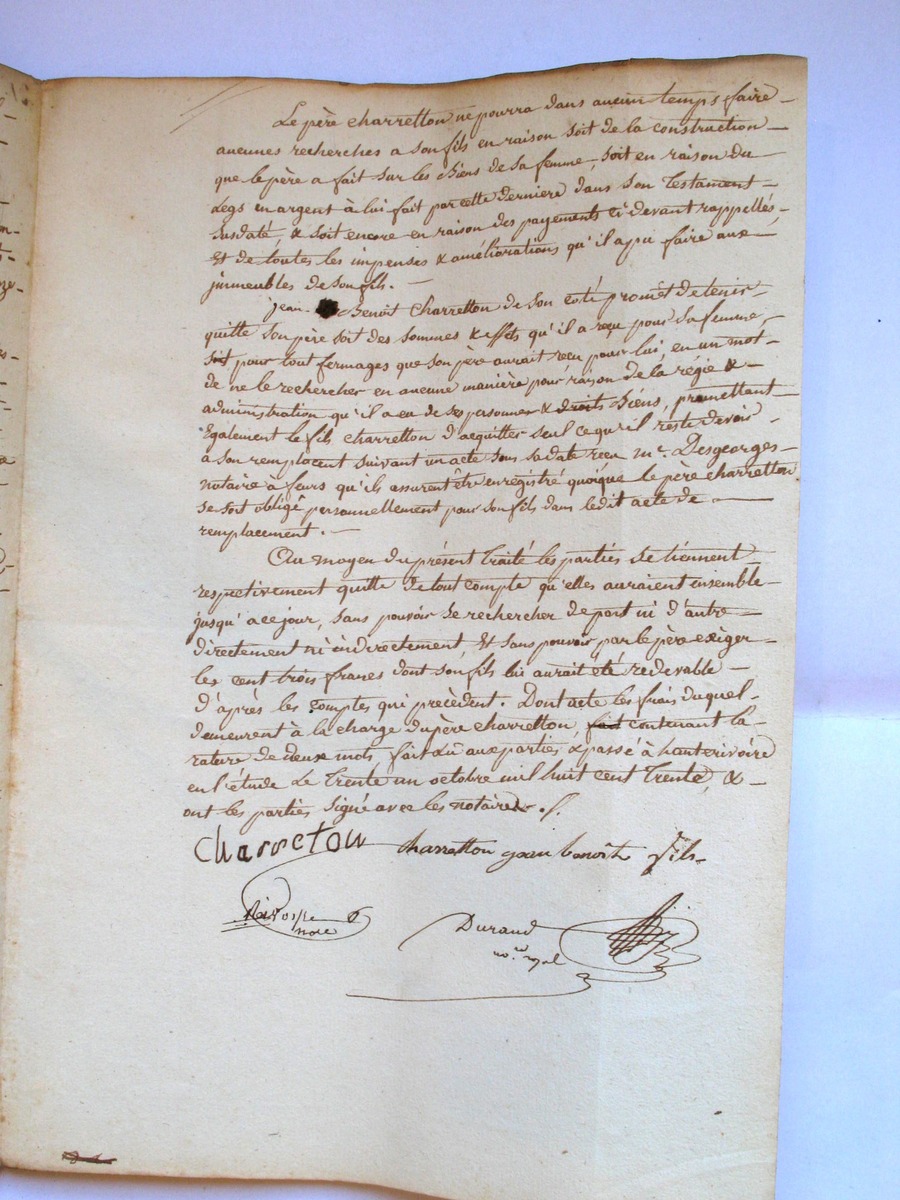 Le père charretton ne pourra dans aucun temps faire
aucunes recherches a son fils en raison soit de la construction
que le père a fait sur les Biens de sa femme, soit en raison du
Legs en argent à lui fait par cette derniere dans son Testament
susdaté, & soit encore en raison des payements ci devant rappellés,
Et de toutes les impenses & améliorations qu'il a pu faire aux
immeubles de son fils.
jean Benoit Charretton de son coté promet de tenir
quitte son père soit des sommes & effets qu'il a reçu pour sa femme,
soit pour tout fermages que son père aurait reçu pour lui, en un mot
de ne le rechercher en aucune manière pour raison de la régie &
administration qu'il a eu de ses personnes & droits Biens, promettant
Egalement le fils charretton d'acquitter seul ce qu'il reste devoir
a son remplacent suivant un acte sous sa date reçu mr. Desgeorges
notaire à feurs qu'ils assurent être enregistré quoique le père charretton
se soit obligé personnellement pour son fils dans ledit acte de
remplacement.
Au moyen du présent Traité les parties se tiennent
respectivement quitte de tout compte qu'elles auraient ensemble
jusqu'a ce jour, sans pouvoir se rechercher de part ni d'autre
directement ni indirectement, Et sans pouvoir par le père exiger
les cent trois francs dont son fils lui aurait été redevable
d'après les comptes qui precèdent. Dont acte les frais duquel
demeurent à la charge du père charretton, fait contenant la
rature de deux mots, fait Lu aux parties & passé à hauterivoire
en l'étude Le Trente un octobre mil huit cent Trente, &
ont les parties signé avec les notaires.
Charreton charretton jean benoit fils
nore Durand
no.re royal